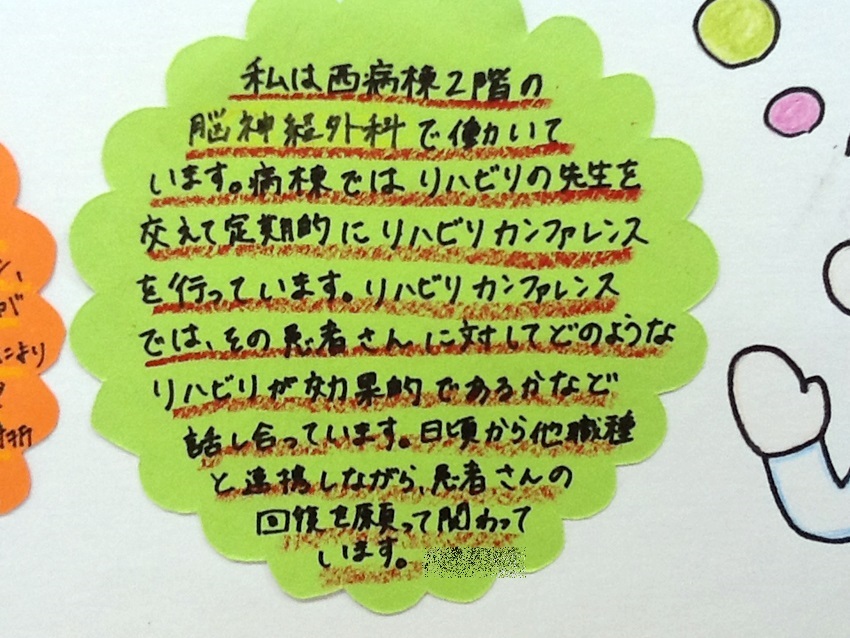 私は西病棟2階の
脳神経外科で働いて
います。病棟ではリハビリの先生を
交えて定期的にリハビリカンファレンス
を行っています。リハビリカンファレンス
では、その患者さんに対してどのような
リハビリが効果的であるかなど
話し合っています。日頃から他職種
と連携しながら、患者さんの
回復を願って関わって
います。
により